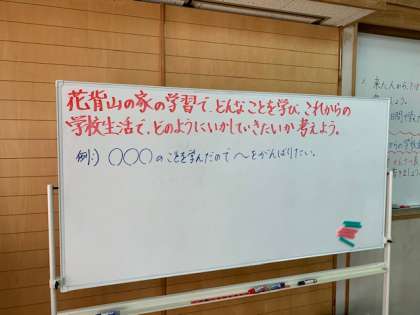 花背山の家の学習で、どんなことを学び、これからの
学校生活で、どのようにいかしていきたいか考えよう。
例:) 〇〇〇のことを学んだので 〜をがんばりたい。